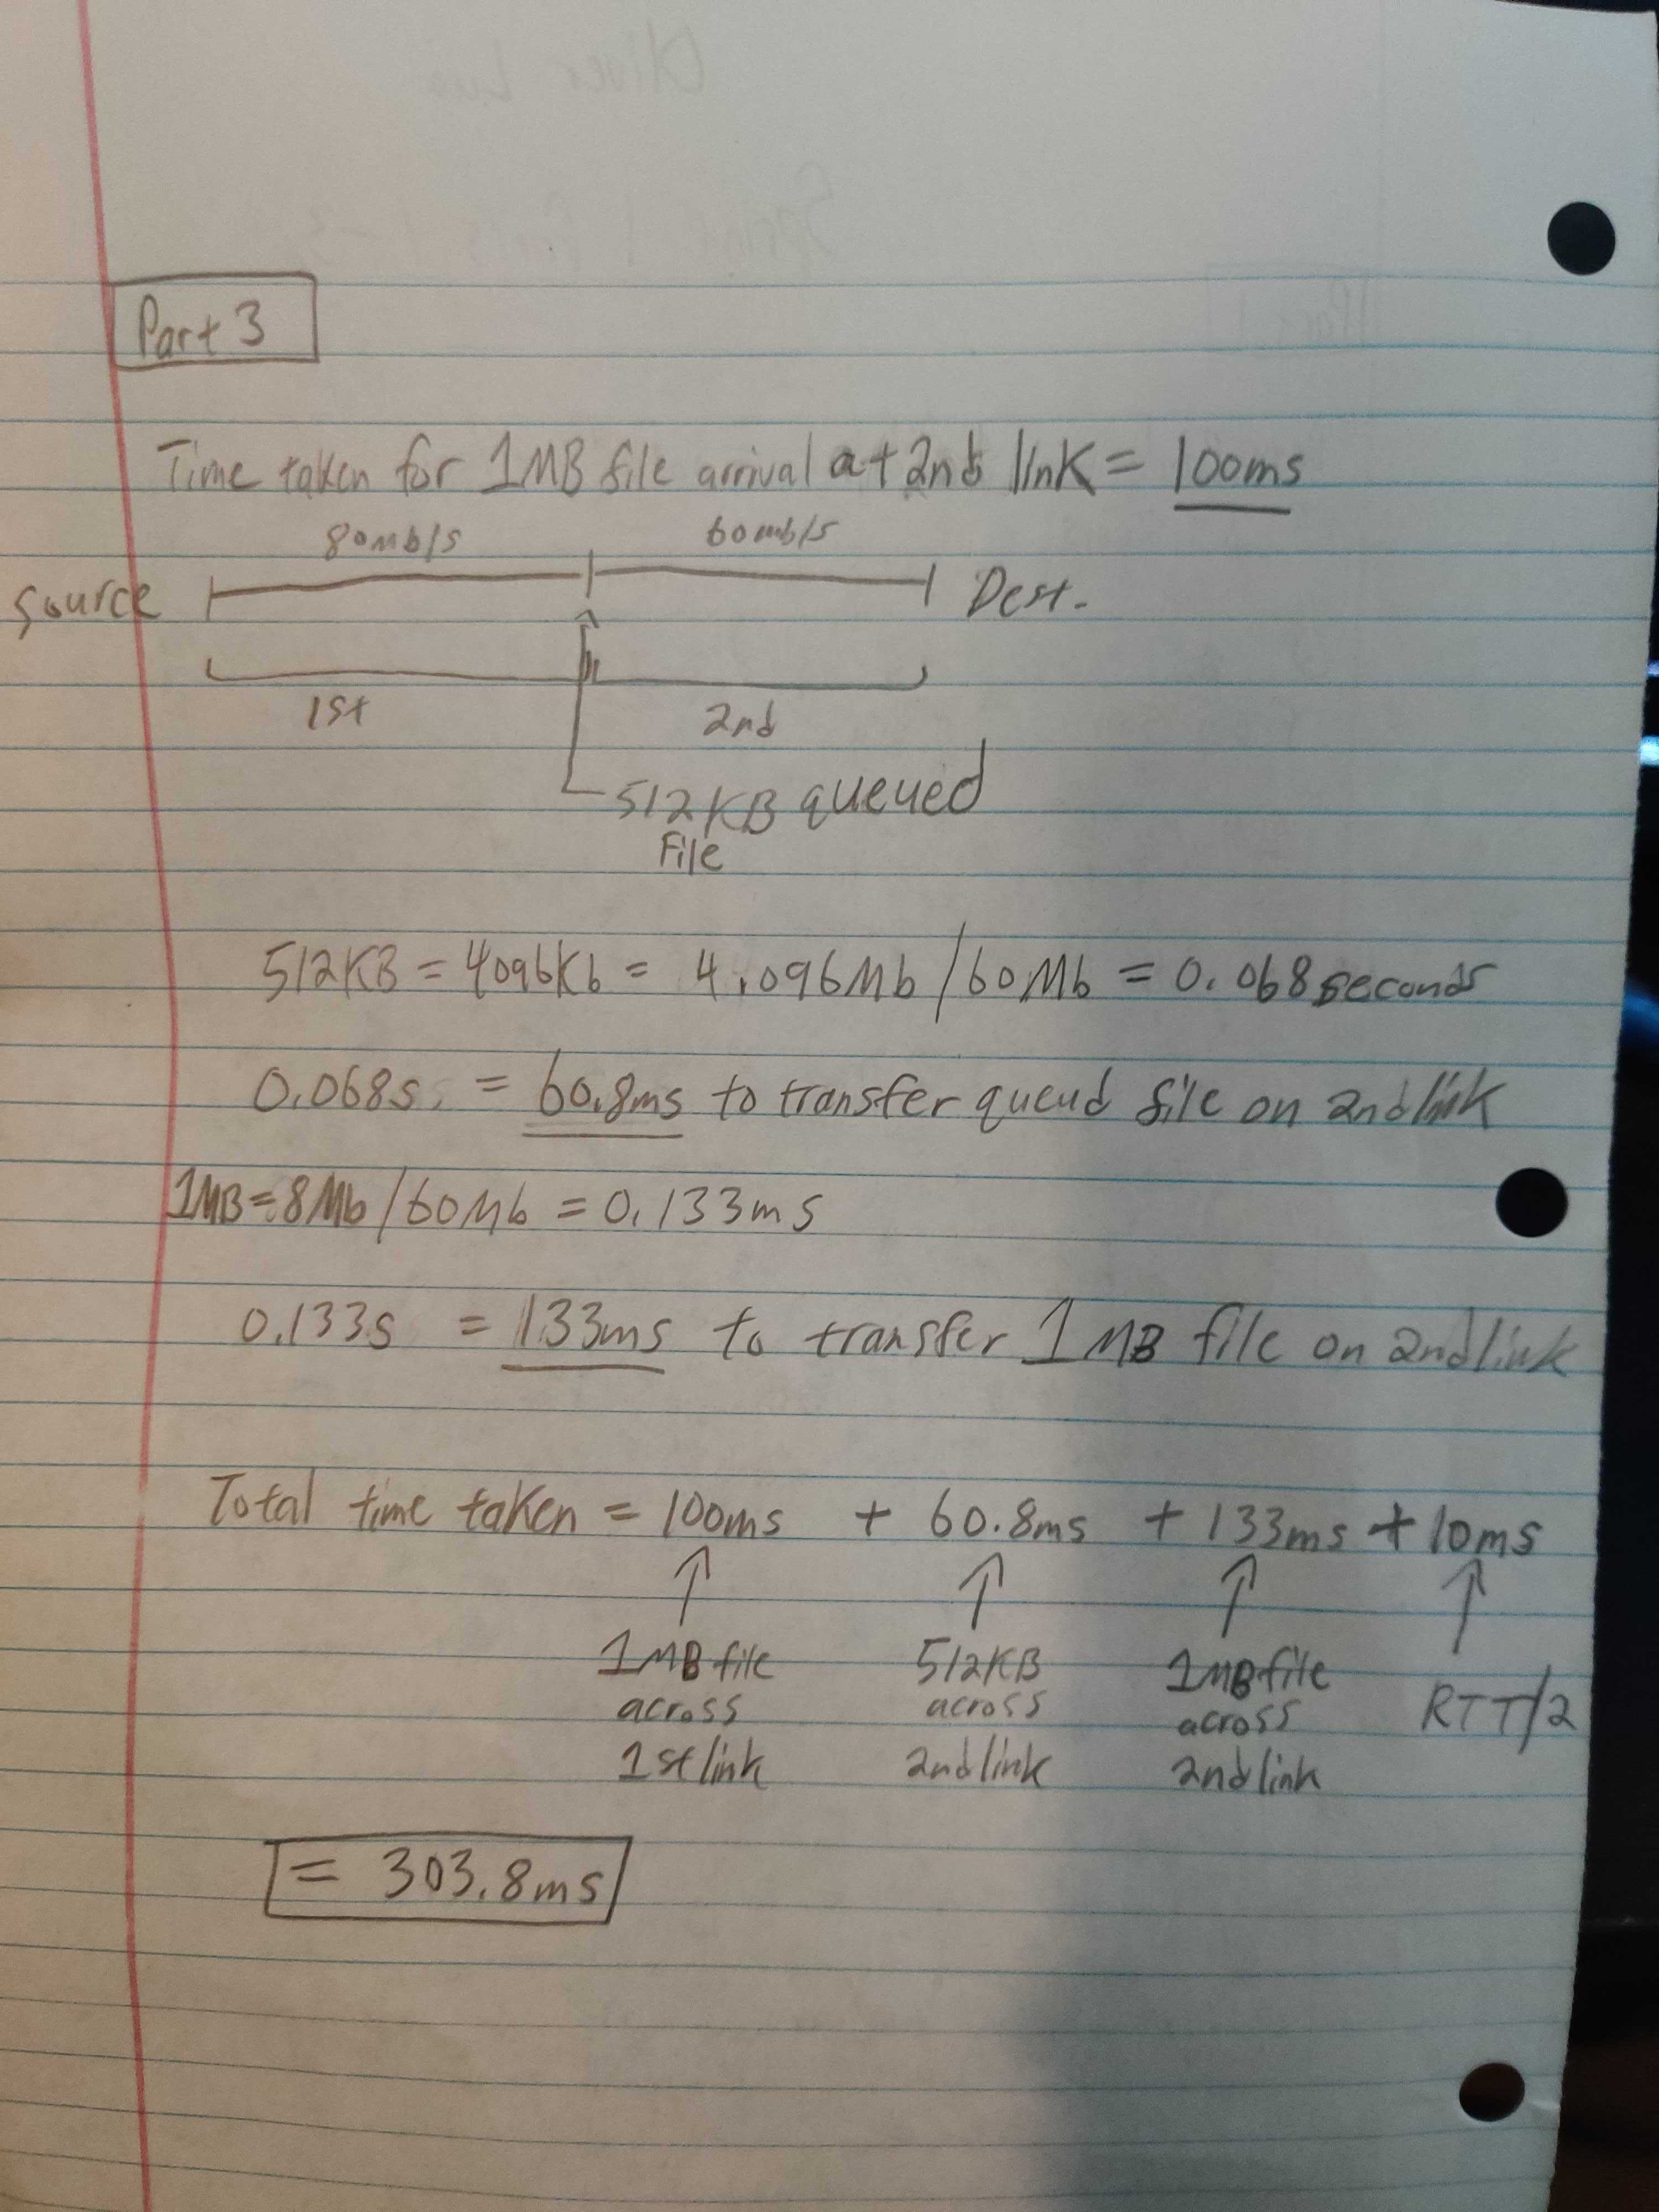 Part 3
Time taken for 1MB file arrival at 2nd link = 100ms
80mb/s 60mb/s
source Dest.
1st 2nd
512KB queued
File
512KB = 4096Kb = 4.096Mb / 60Mb = 0.068 seconds
0.068s. = 60.8ms to transfer queud file on 2nd link
1MB = 8Mb / 60Mb = 0.133ms
0.133s = 133ms to transfer 1MB file on 2nd link
Total time taken = 100ms + 60.8ms + 133ms + 10ms
↑ ↑ ↑ ↑
1MB file 512KB 1MB file RTT/2
across across across
1st link 2nd link 2nd link
= 303.8ms